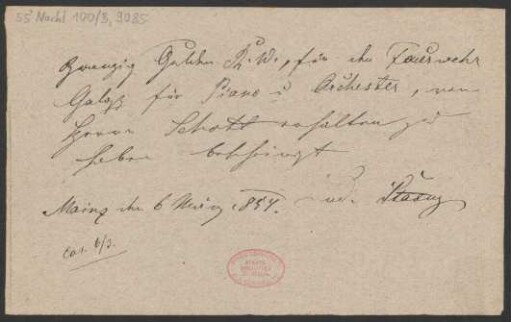 55 Nachl 100/B, 9085
Zwanzig Gulden R. W., für den Feuerwehr
Galopp für Piano u Orchester, von
Herrn Schott erhalten zu
haben bescheinigt
Mainz den 6 März 1854.
6/3.